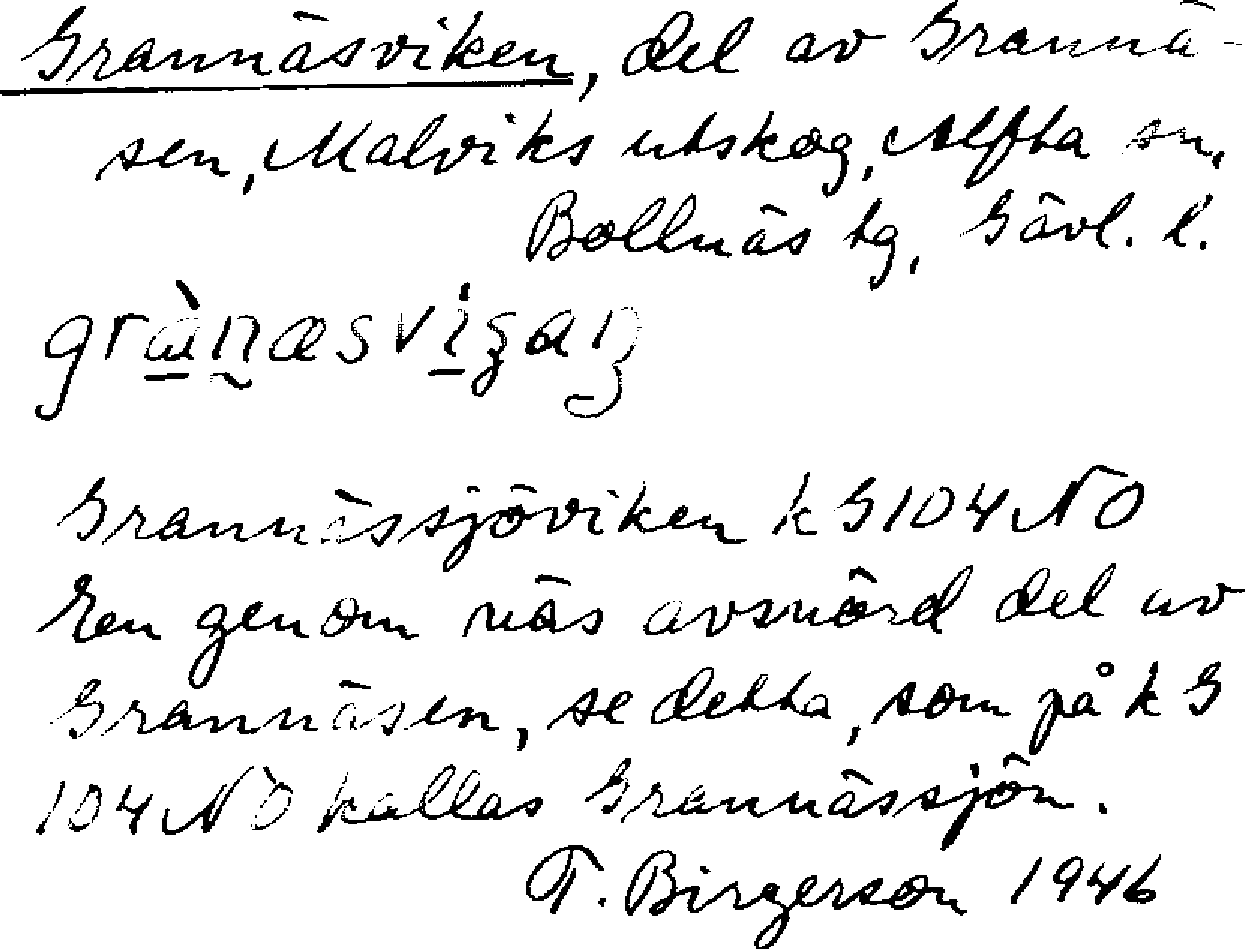 Grannäsviken, del av Grannä-
sen, Malviks utskog, Alfta sn,
Bollnäs tg, Gävl. l.
grànæsvìgan
Grannässjöviken k G 104 NO
En genom näs avsnörd del av
Grannäsen, se detta, som på k G
104 NO kallas Grannässjön.
T. Birgerson 1946